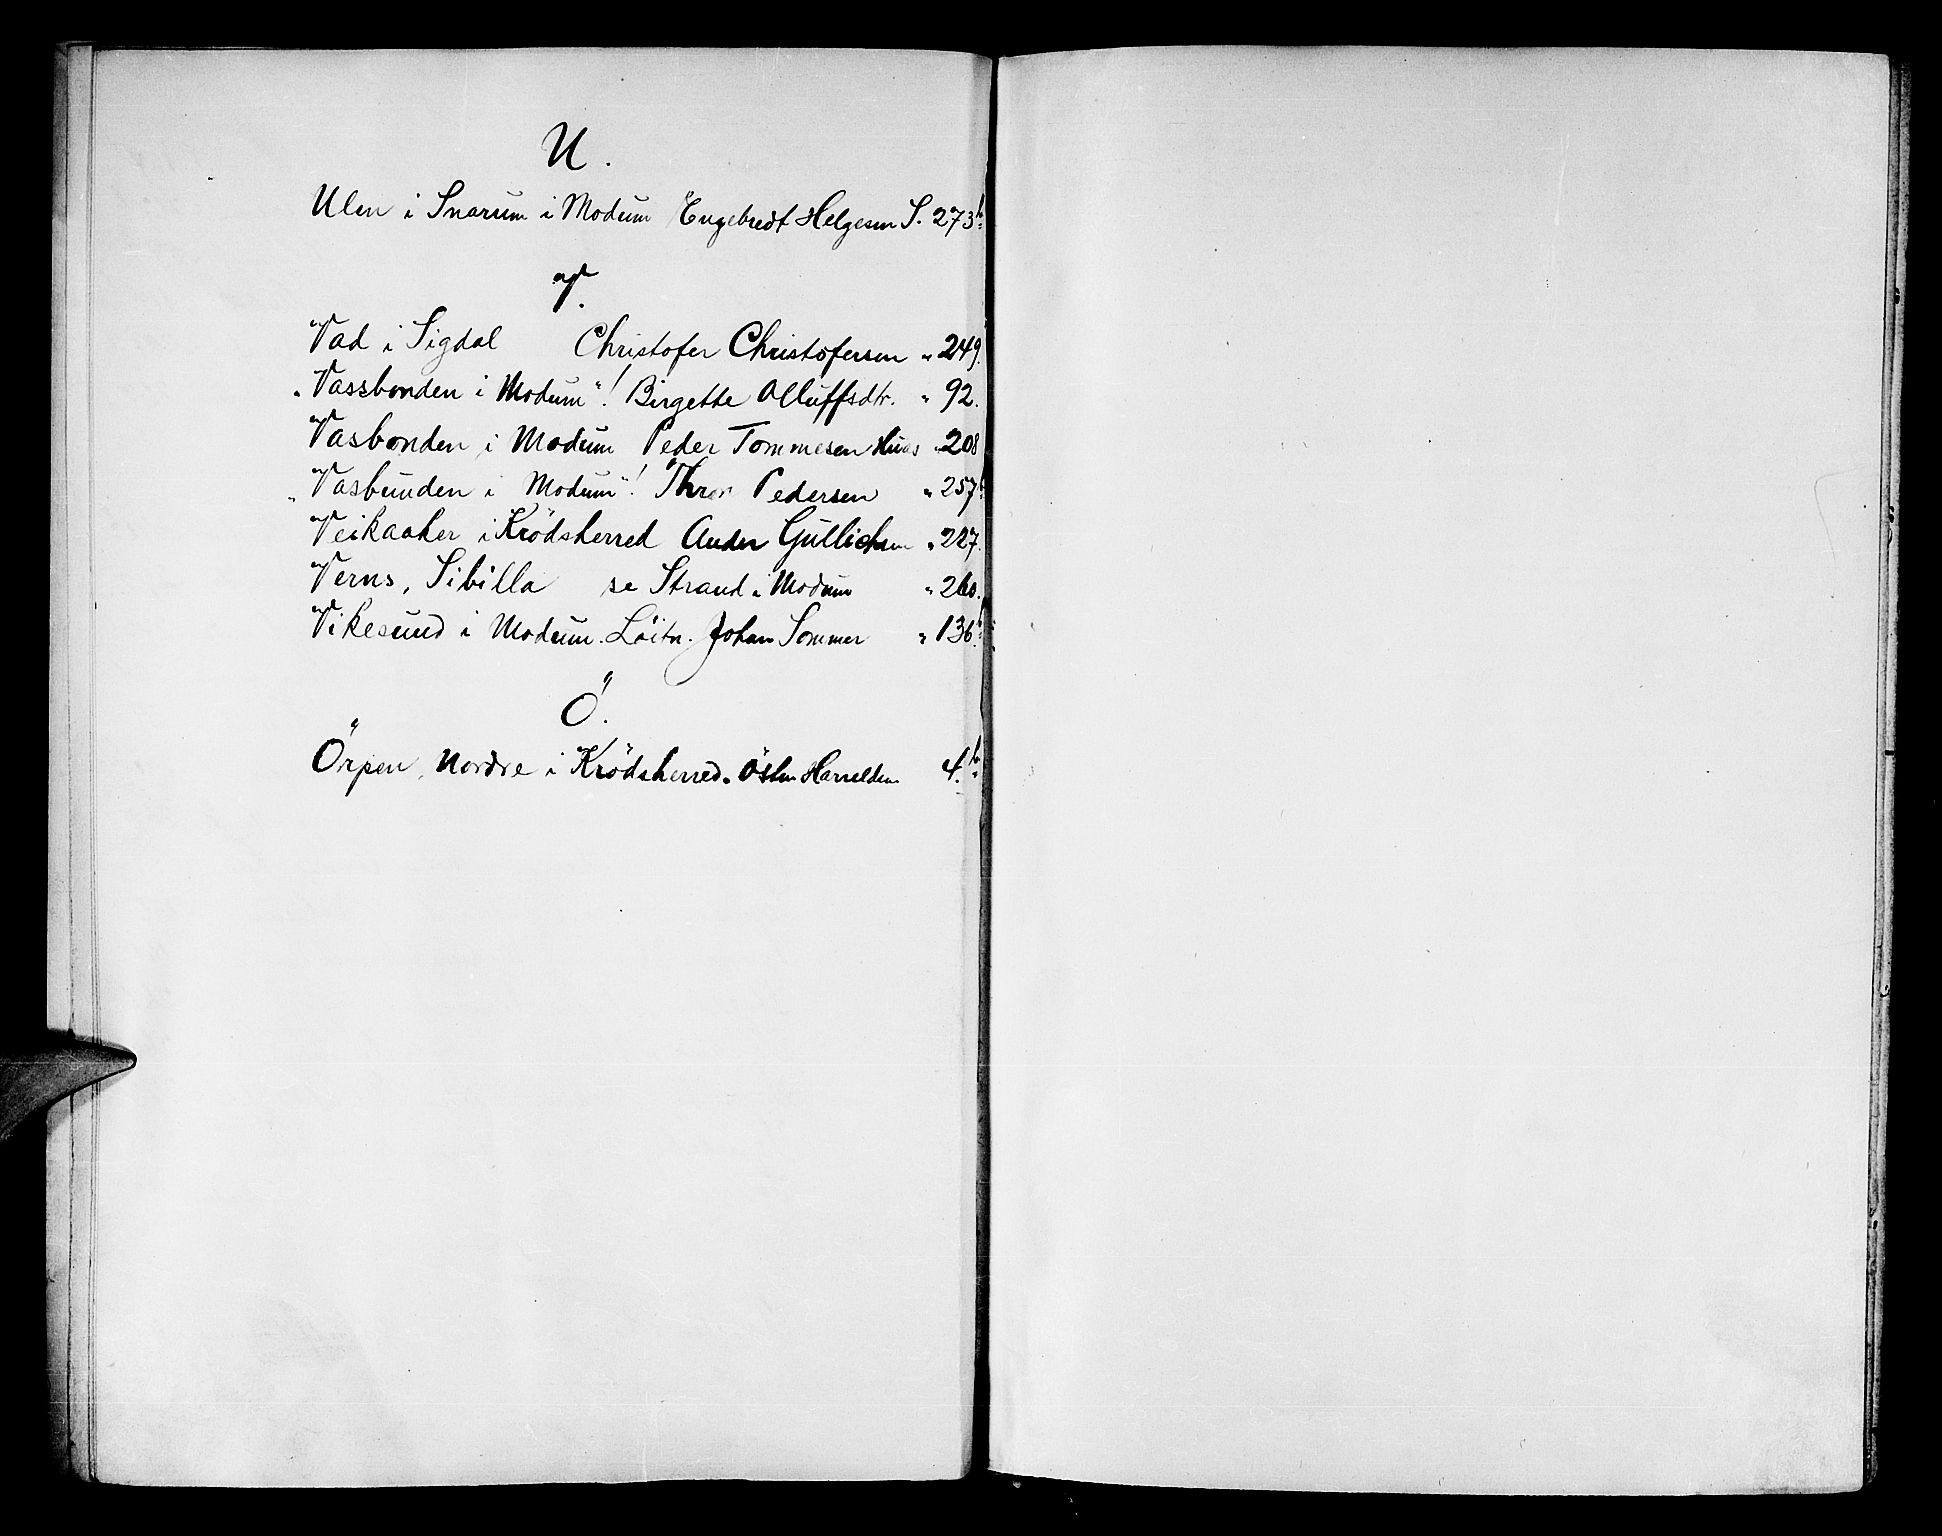 U.
Ulen i Snarum i Modum Engebredt Helgesen S. 273b
V.
Vad i Sigdal Christofer Christofersen " 249.
"Vassbonden i Modum"! Birgette Olluffsdtr. " 92.
Vasbonden i Modum Peder Tommesen " 208
"Vasbunden i Modum"! Thron Pedersen " 257b
Veikaaker i Krödsherred Ander Gullichsen " 227.
Verns, Sibilla se Strand i Modum " 260.
Vikesund i Modum. Löitn. Johan Sommer " 136b
Ö.
Örpen, Nordre i Krödsherred. Östen Harreldsen 4.b